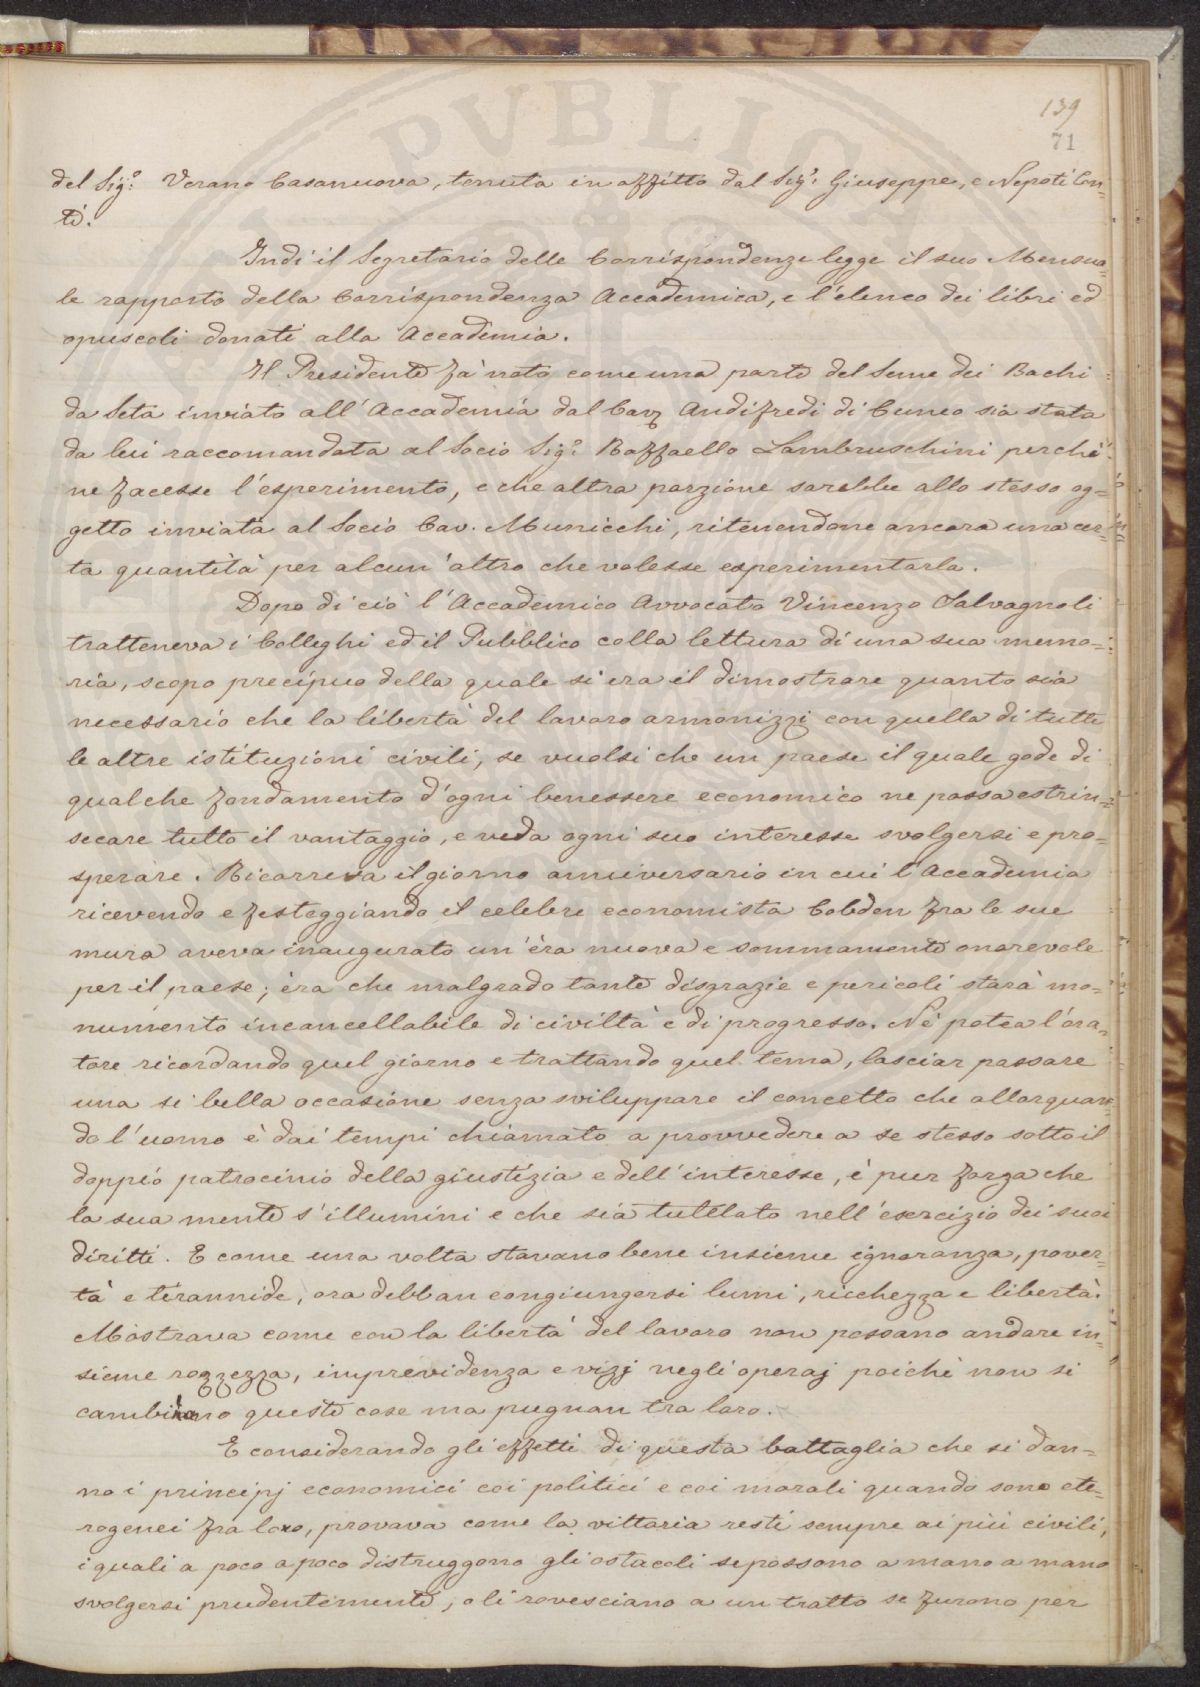 PVBLICA
139
71
del Sig.º Verano Casanuova, tenuta in affitto dal Sig.ʳ Giuseppe, e Nepoti Con=
ti.
Indi il Segretario delle Corrispondenze legge il suo Mensua=
le rapporto della Corrispondenza Accademica, e l'elenco dei libri ed
opuscoli donati alla Accademia.
Il Presidente fa noto come una parte del Seme dei Bachi
da Seta inviato all'Accademia dal Cav. Audifredi di Cuneo sia stata
da lui raccomandata al Socio Sig.º Raffaello Lambruschini perchè
ne facesse l'esperimento, e che altra porzione sarebbe allo stesso og=
getto inviata al Socio Cav. Municchi, ritenendone ancora una cer=
ta quantità per alcun'altro che volesse esperimentarla.
Dopo di ciò l'Accademico Avvocato Vincenzo Salvagnoli
tratteneva i Colleghi ed il Pubblico colla lettura di una sua memo=
ria, scopo precipuo della quale si era il dimostrare quanto sia
necessario che la libertà del lavoro armonizzi con quella di tutte
le altre istituzioni civili, se vuolsi che un paese il quale gode di
qualche fondamento d'ogni benessere economico ne possa estrin=
secare tutto il vantaggio, e veda ogni suo interesse svolgersi e pro=
sperare. Ricorreva il giorno anniversario in cui l'Accademia
ricevendo e festeggiando il celebre economista Cobden fra le sue
mura aveva inaugurato un'èra nuova e sommamente onorevole
per il paese; èra che malgrado tante disgrazie e pericoli starà mo=
numento incancellabile di civiltà e di progresso. Nè potea l'ora=
tore ricordando quel giorno e trattando quel tema, lasciar passare
una si bella occasione senza sviluppare il concetto che allorquan=
do l'uomo è dai tempi chiamato a provvedere a se stesso sotto il
doppio patrocinio della giustizia e dell'interesse, è pur forza che
la sua mente s'illumini e che sia tutelato nell'esercizio dei suoi
diritti. E come una volta stavano bene insieme ignoranza, pover=
tà e tirannide, ora debban congiungersi lumi, ricchezza e libertà.
Mostrava come con la libertà del lavoro non possano andare in=
sieme rozzezza, imprevidenza e vizj negli operaj poichè non si
queste cose ma pugnan tra loro.
E considerando gli effetti di questa battaglia che si dan=
no i principj economici coi politici e coi morali quando sono ete=
rogenei fra loro, provava come la vittoria resti sempre ai più civili,
i quali a poco a poco distruggono gli ostacoli se possono a mano a mano
svolgersi prudentemente, o li rovesciano a un tratto se furono per